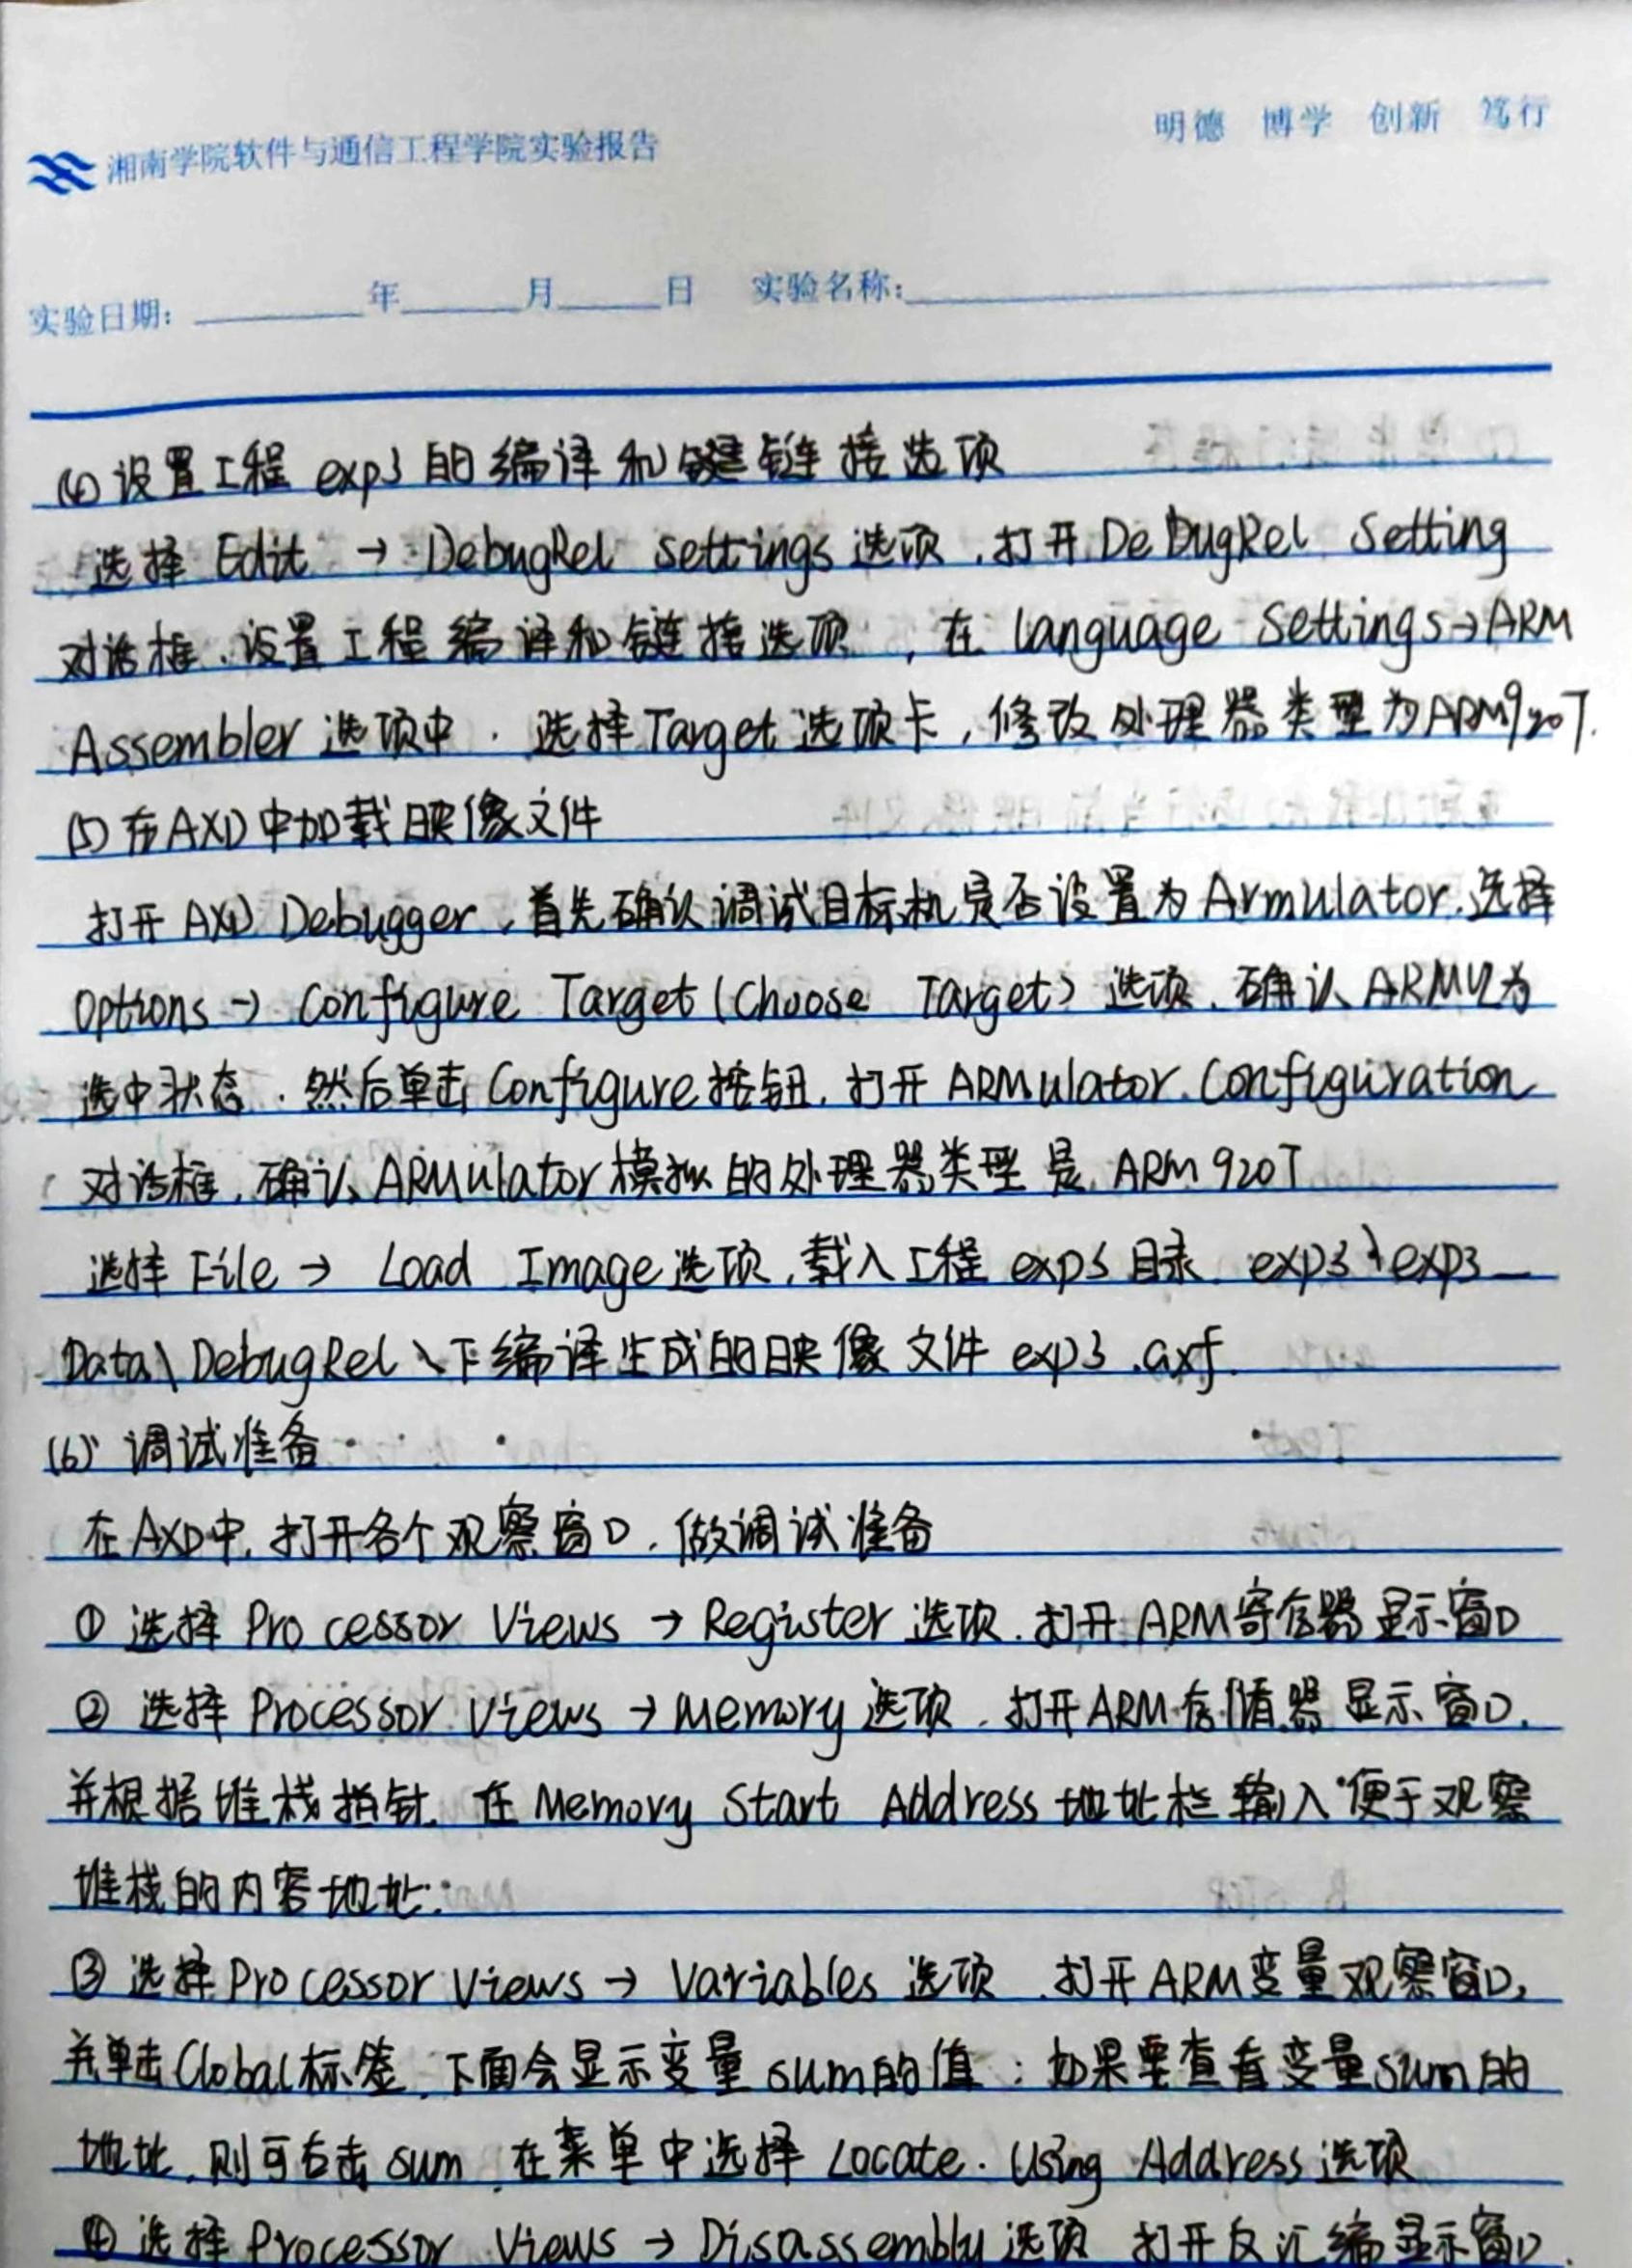 明德 博学 创新 笃行
湘南学院软件与通信工程学院实验报告
实验日期: 年 月 日 实验名称:
(4) 设置工程 exp3 的编译和键链接选项
选择 Edit → DebugRel settings 选项,打开 DeBugRel Setting
对话框,设置工程编译和链接选项,在 language Settings→ARM
Assembler 选项中,选择Target选项卡,修改处理器类型为ARM920T.
(5) 在AXD中加载映像文件
打开AXD Debugger,首先确认调试目标机是否设置为Armulator.选择
Options → Configure Target (Choose Target) 选项,确认ARMUL为
选中状态.然后单击Configure按钮,打开ARMulator Configuration
对话框,确认ARMulator模拟的处理器类型是 ARM920T
选择File → Load Image选项,载入工程 exp3 目录 exp3\exp3_
Data\DebugRel\下编译生成的映像文件 exp3.axf.
(6) 调试准备
在AXD中,打开各个观察窗口,做调试准备
① 选择 Processor Views → Register 选项,打开ARM寄存器显示窗口
② 选择 Processor Views → Memory 选项,打开ARM存储器显示窗口,
并根据堆栈指针,在Memory Start Address地址栏输入便于观察
堆栈的内容地址:
③ 选择Processor Views → Variables 选项,打开ARM变量观察窗口,
并单击Global标签,下面会显示变量sum的值;如果要查看变量sum的
地址,则可右击sum,在菜单中选择 Locate. Using Address选项
④ 选择 Processor Views → Disassembly选项 打开反汇编显示窗口